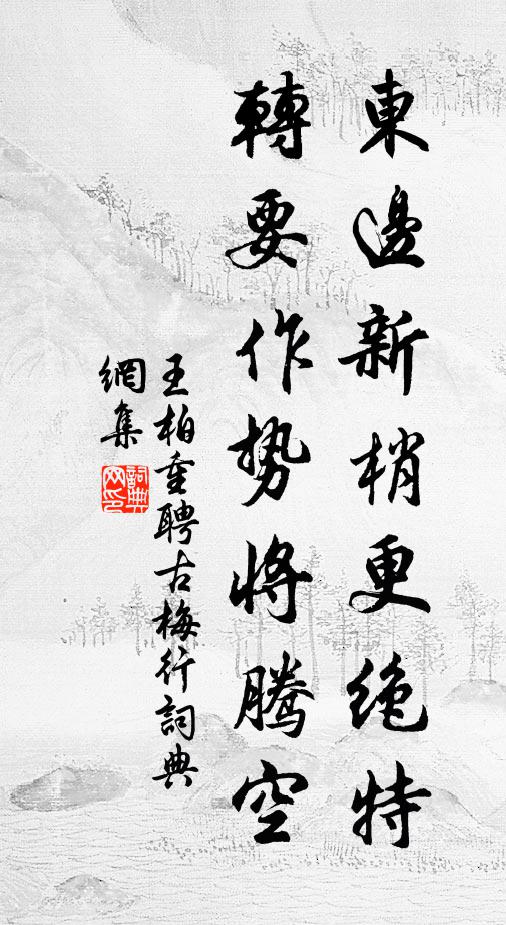 東邊新梢更絶特
轉要作勢將騰空
王柏重聘古梅行詞典
網集
詞典
网印